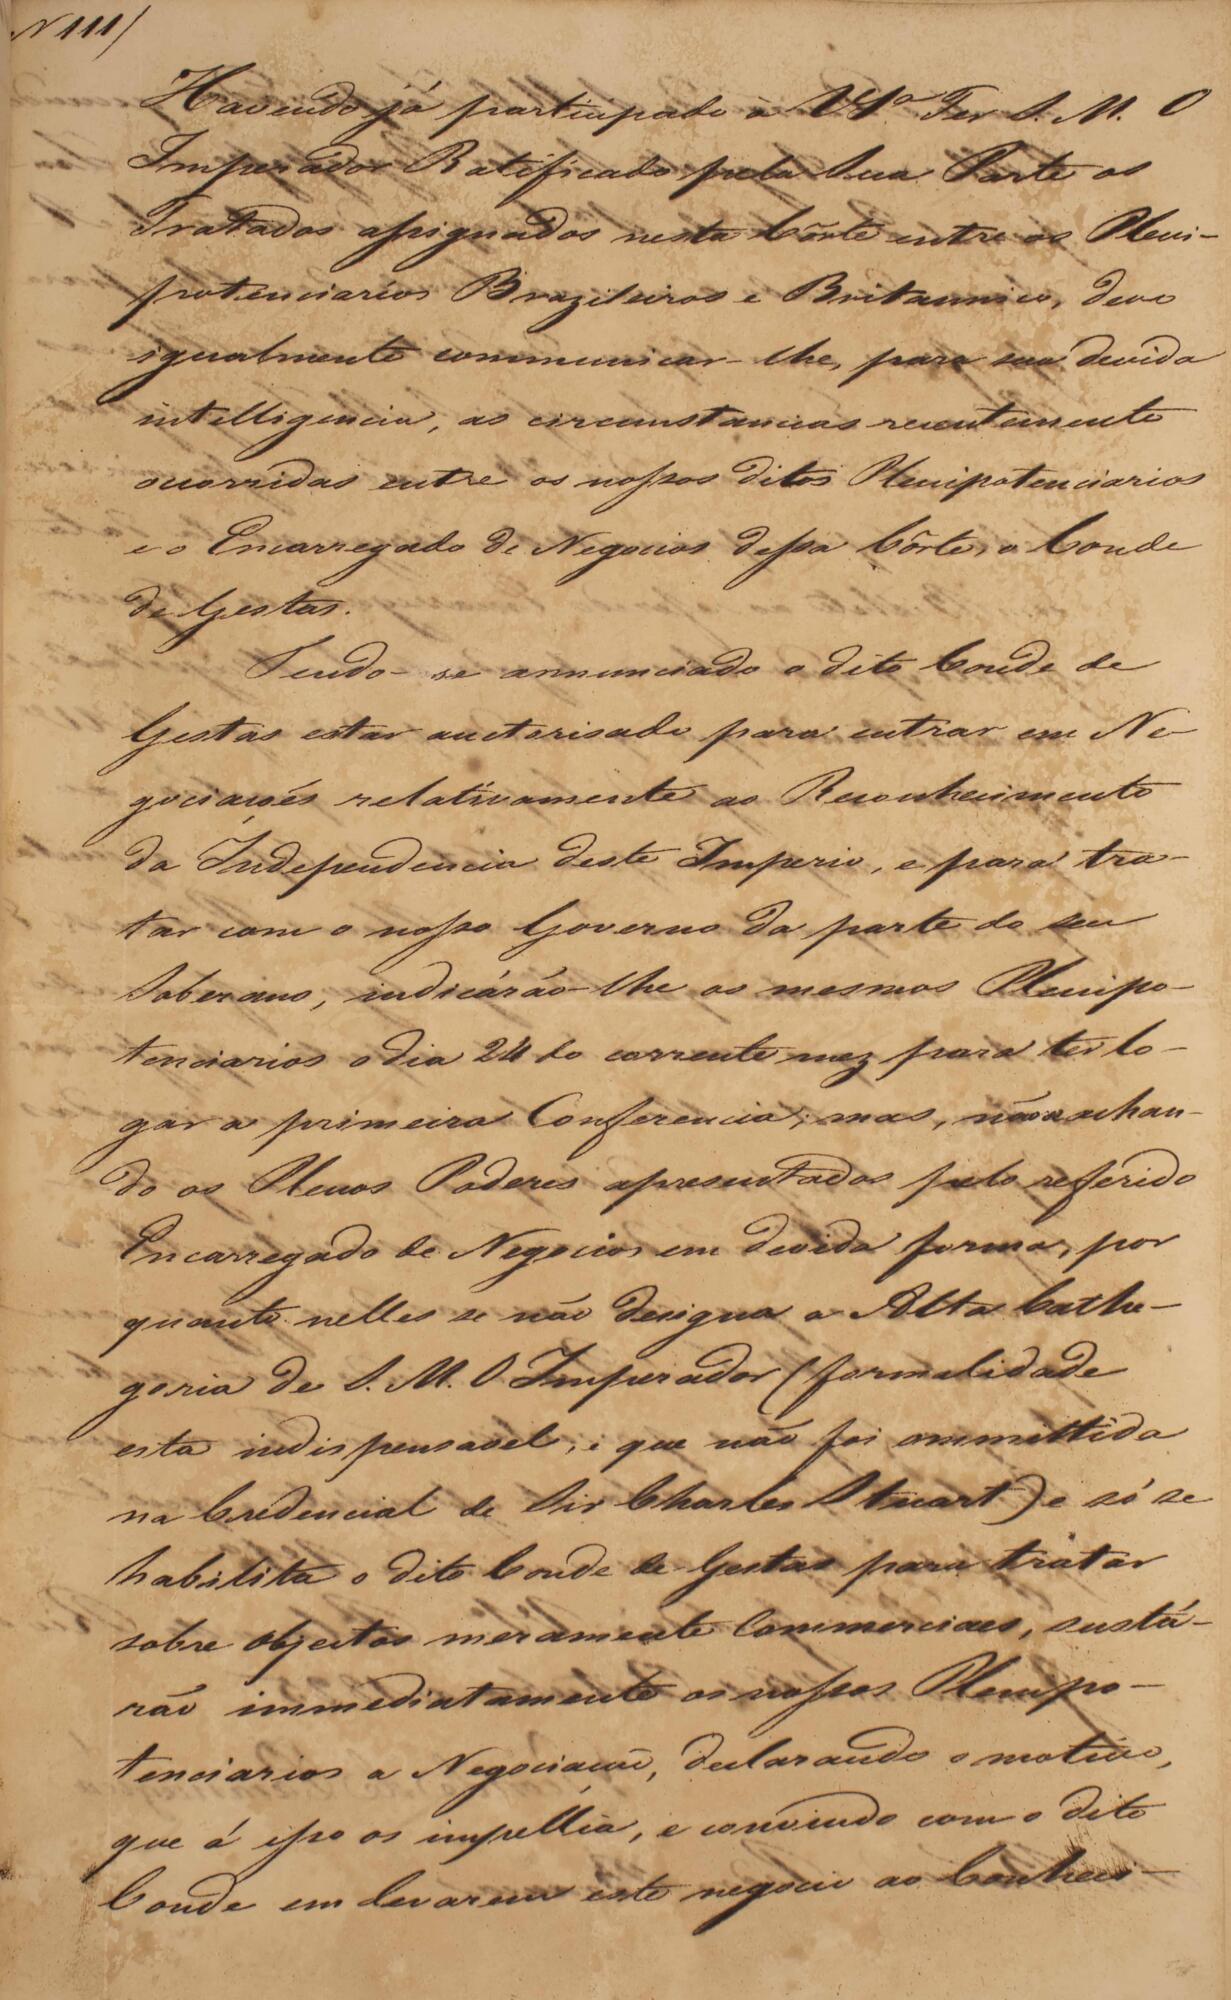 N 111/
Havendo já participado a V. S.ª Ter S. M. O
Imperador Ratificado pela Sua Parte os
Tratados assignados nesta Côrte entre os Pleni-
potenciarios Brazileiros e Britannico, devo
igualmente communicar-lhe, para sua devida
intelligencia, as circunstancias recentemente
occorridas entre os nossos ditos Plenipotenciarios
e o Encarregado de Negocios dessa Côrte, o Conde
de Gestas.
Tendo-se annunciado o dito Conde de
Gestas estar auctorisado para entrar em Ne-
gociações relativamente ao Reconhecimento
da Independencia deste Imperio, e para tra-
tar com o nosso Governo da parte do seu
Soberano, indicárão-lhe os mesmos Plenipo-
tenciarios o dia 24 do corrente mez para ter lo-
gar a primeira Conferencia; mas, não achan-
do os Plenos Poderes apresentados pelo referido
Encarregado de Negocios em devida forma, por
quanto nelles se não designa a Alta Cathe-
goria de S. M. O Imperador (formalidade
esta indispensavel, e que não foi ommittida
na Credencial de Sir Charles Stuart) e só se
habilita o dito Conde de Gestas para tratar
sobre objectos meramente Commerciaes, sustá-
rão immediatamente os nossos Plenipo-
tenciarios a Negociação, declarando o motivo,
que á isso os impellia, e convindo com o dito
Conde em levarem este negocio ao Conheci-